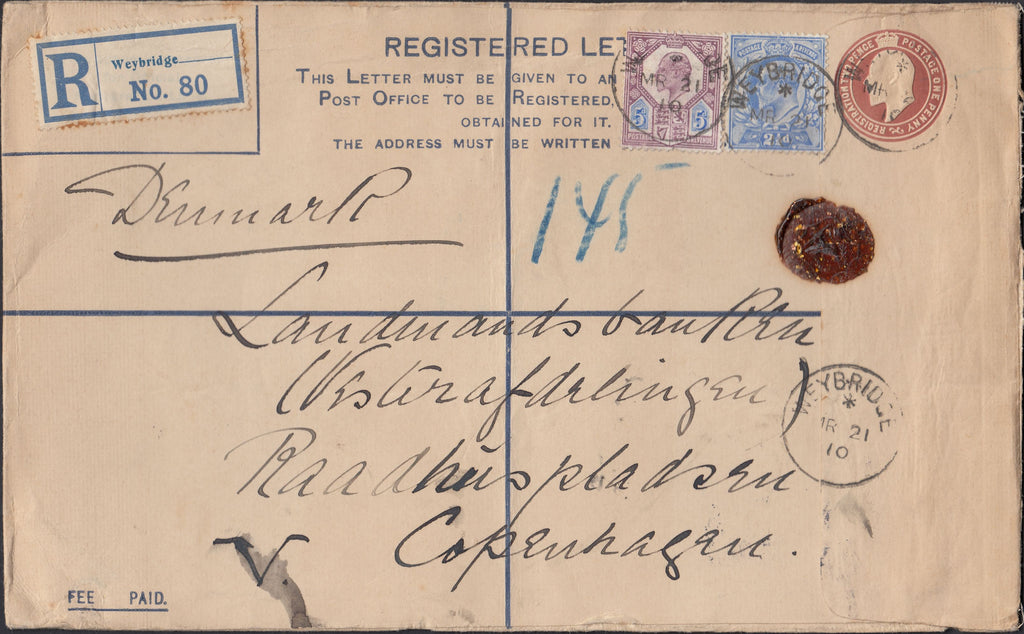 R
Weybridge
No. 80
REGISTERED LET
THIS LETTER MUST BE GIVEN TO AN
POST OFFICE TO BE REGISTERED,
OBTAINED FOR IT.
THE ADDRESS MUST BE WRITTEN
WEYBRIDGE
MR 21
10
WEYBRIDGE
MR 21
10
REGISTRATION TWO PENCE POSTAGE ONE PENNY
Denmark
145
Landmandsbanken
(Vesterafdelingen)
Raadhuspladsen
Copenhagen.
V.
WEYBRIDGE
MR 21
10
FEE PAID.